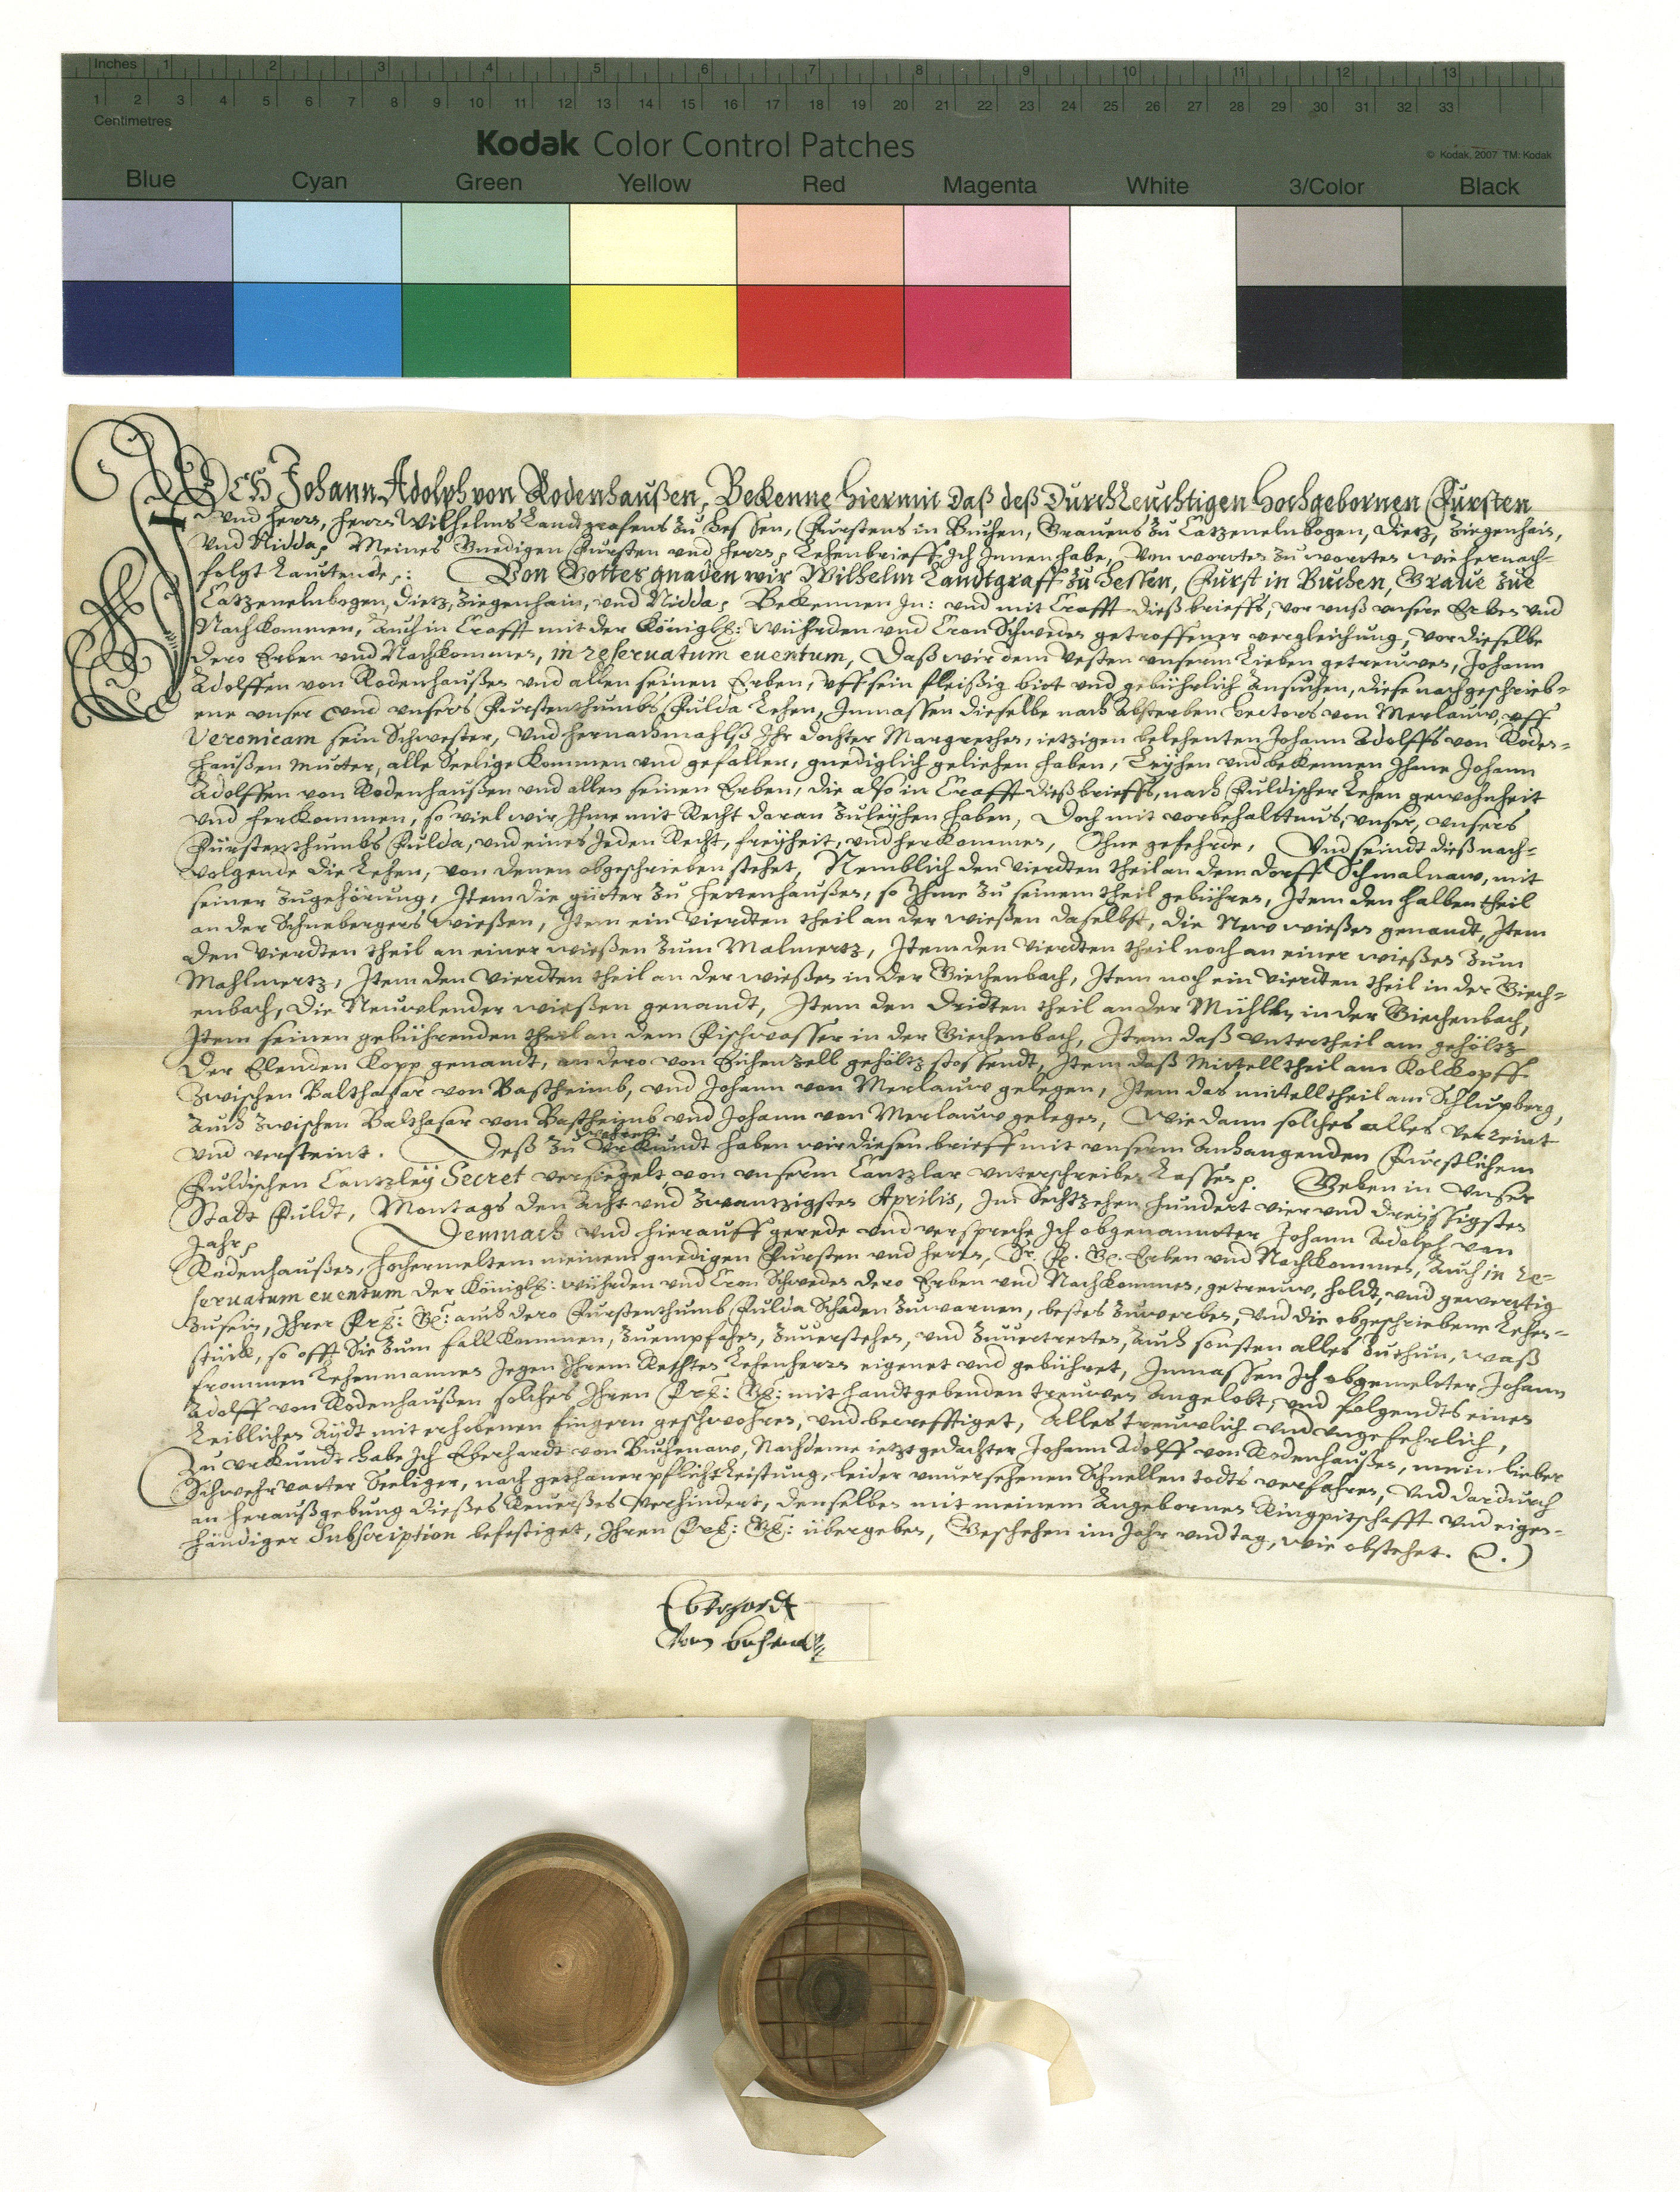 Inches 1 2 3 4 5 6 7 8 9 10 11 12 13
1 2 3 4 5 6 7 8 9 10 11 12 13 14 15 16 17 18 19 20 21 22 23 24 25 26 27 28 29 30 31 32 33
Centimetres
Kodak Color Control Patches
© Kodak, 2007 TM: Kodak
Blue Cyan Green Yellow Red Magenta White 3/Color Black
ICH Johann Adolph von Rodenhaußen, Bekenne hiermit daß deß Durchleuchtigen Hochgebornen Fursten
und Herrn, Herrn Wilhelms Landgrafens zu Hessen, Furstens in Buchen, Gravens zu Catzenelnbogen, Dietz, Ziegenhain,
Und Nidda, Meines Gnedigen Fursten und Herrn, Lehenbrieff Ich Innen habe, Von worten zu worten wie hernach-
folgt Lautende: Von Gottes gnaden wir Wilhelm Landtgraff zu Hessen, Furst in Buchen, Grave zue
Catzenelnbogen, Dietz, Ziegenhain, und Nidda, Bekennen In: und mit Crafft dieß brieffs, vor unß unsere Erben und
Nachkommen, Auch in Crafft mit der Königl: Würden und Cron Schweden getroffener vergleichung, vor dieselbe
dero Erben und Nachkommen, in reseruatum euentum, Daß wir dem Vesten unserm Lieben getreuwen, Johann
Adolffen von Rodenhaußen und allen seinen Erben, uff sein fleißig bitt und gebührlich Ansuchen, diese nachgeschrieb-
ene unser und unsers Furstenthumbs Fulda Lehen, Inmassen dieselbe nach Absterben Hectors von Merlauw, uff
Veronicam sein Schwester, Und hernachmahlß Ihr dochter Margrethen, ietzigen belehenten Johann Adolffs von Roden-
haußen Mutter, alle Seelige Kommen und gefallen, gnediglich geliehen haben, Leyhen und bekennen Ihme Johann
Adolffen von Rodenhaußen und allen seinen Erben, die also in Crafft dieß brieffs, nach Fuldischer Lehen gewohnheit
und herkommen, so viel wir Ihme mit Recht daran zuleyhen haben, Doch mit vorbehaltnus, unser, unsers
Fürstenthumbs Fulda, und eines Jeden Recht, freyheit, und herkommen, Ohne gefehrde, Und seindt dieß nach-
volgende die Lehen, von denen obgeschrieben stehet, Nemblich den Vierdten theil an dem dorff Schmalnaw, mit
seiner Zugehörung, Item die güter zu Hettenhaußen, so Ihme zu seinem theil gebühren, Item den halben theil
an der Schnebergers wießen, Item ein Vierdten theil an der wießen daselbst, die New wießen genandt, Item
den Vierdten theil an einer wießen zum Malmertz, Item den Vierdten theil noch an einer wießen zum
Mahlmertz, Item den Vierdten theil an der wießen in der Giechenbach, Item noch ein Vierdten theil in der Giech-
enbach, die Neuwlender wießen genandt, Item den dridten theil an der Mühlen in der Giechenbach,
Item seinen gebührenden theil an dem Fischwasser in der Giechenbach, Item daß untertheil am gehöltz
der Elenden Kopp genandt, an dero von Eichenzell gehöltz stossendt, Item daß Mittelltheil am Kolckopff
zwischen Balthasar von Bastheimb, und Johann von Merlauw gelegen, Item das mittelltheil am Schlupberg,
Auch zwischen Balthasar von Bastheimb und Johann von Merlauw gelegen, Wie dann solches alles verreint
und versteint. Deß zu Urkundt haben wir diesen brieff mit unserm Anhangenden Furstlichem
Fuldischen Cantzley Secret versiegelt, von unserm Cantzlar unterschreiben Lassen. Geben in unser
Stadt Fuldt, Montags den Acht und zwantzigsten Aprilis, Im Sechtzehen hundert vier und dreyssigsten
Jahr. Demnach und hierauff gerede und verspreche Ich obgenannter Johann Adolph von
Rodenhaußen, hochermeltem meinem gnedigen Fursten und herrn, Sr. F. G. Erben und Nachkommen, Auch in re-
seruatum euentum der Königl: Würden und Cron Schweden dero Erben und Nachkommen, getreuw, holdt, und gewertig
zu sein, Ihrer Frl: Gl: auch dero Furstenthumb Fulda Schaden zuwarnen, bestes zuwerben, Und die obgeschriebene Lehen-
stück, so offt Sie zum fall kommen, zuempfahen, zuverstehen, und zuvertretten, Auch sonsten alles zuthun, waß
frommen Lehenmannen Jegen Ihrem Rechten Lehenherrn eigenet und gebühret, Inmassen Ich obgemelter Johann
Adolff von Rodenhaußen solches Ihren Frl: Gl: mit handtgebenden treuwen angelobt, und folgendts einen
Leiblichen Aydt mit erhobenen fingern geschwohren, und becrefftiget, Alles treuwlich und ungefehrlich,
Zu urkundt habe Ich Eberhardt von Buchenaw, Nachdeme ietzt gedachter Johann Adolff von Rodenhaußen, mein lieber
Schwehrvatter Seeliger, nach gethaner pflicht Leistung, leider unversehenen Schnellen todts verfahren, Und dardurch
an heraußgebung dießes Reverßes verhindert, denselben mit meinem Angebornen Ringpitschafft und eigen-
händiger Subscription befestiget, Ihren Frl: Gl: übergeben, Geschehen im Jahr und tag, wie obstehet.
Eberhardt
von buchenaw